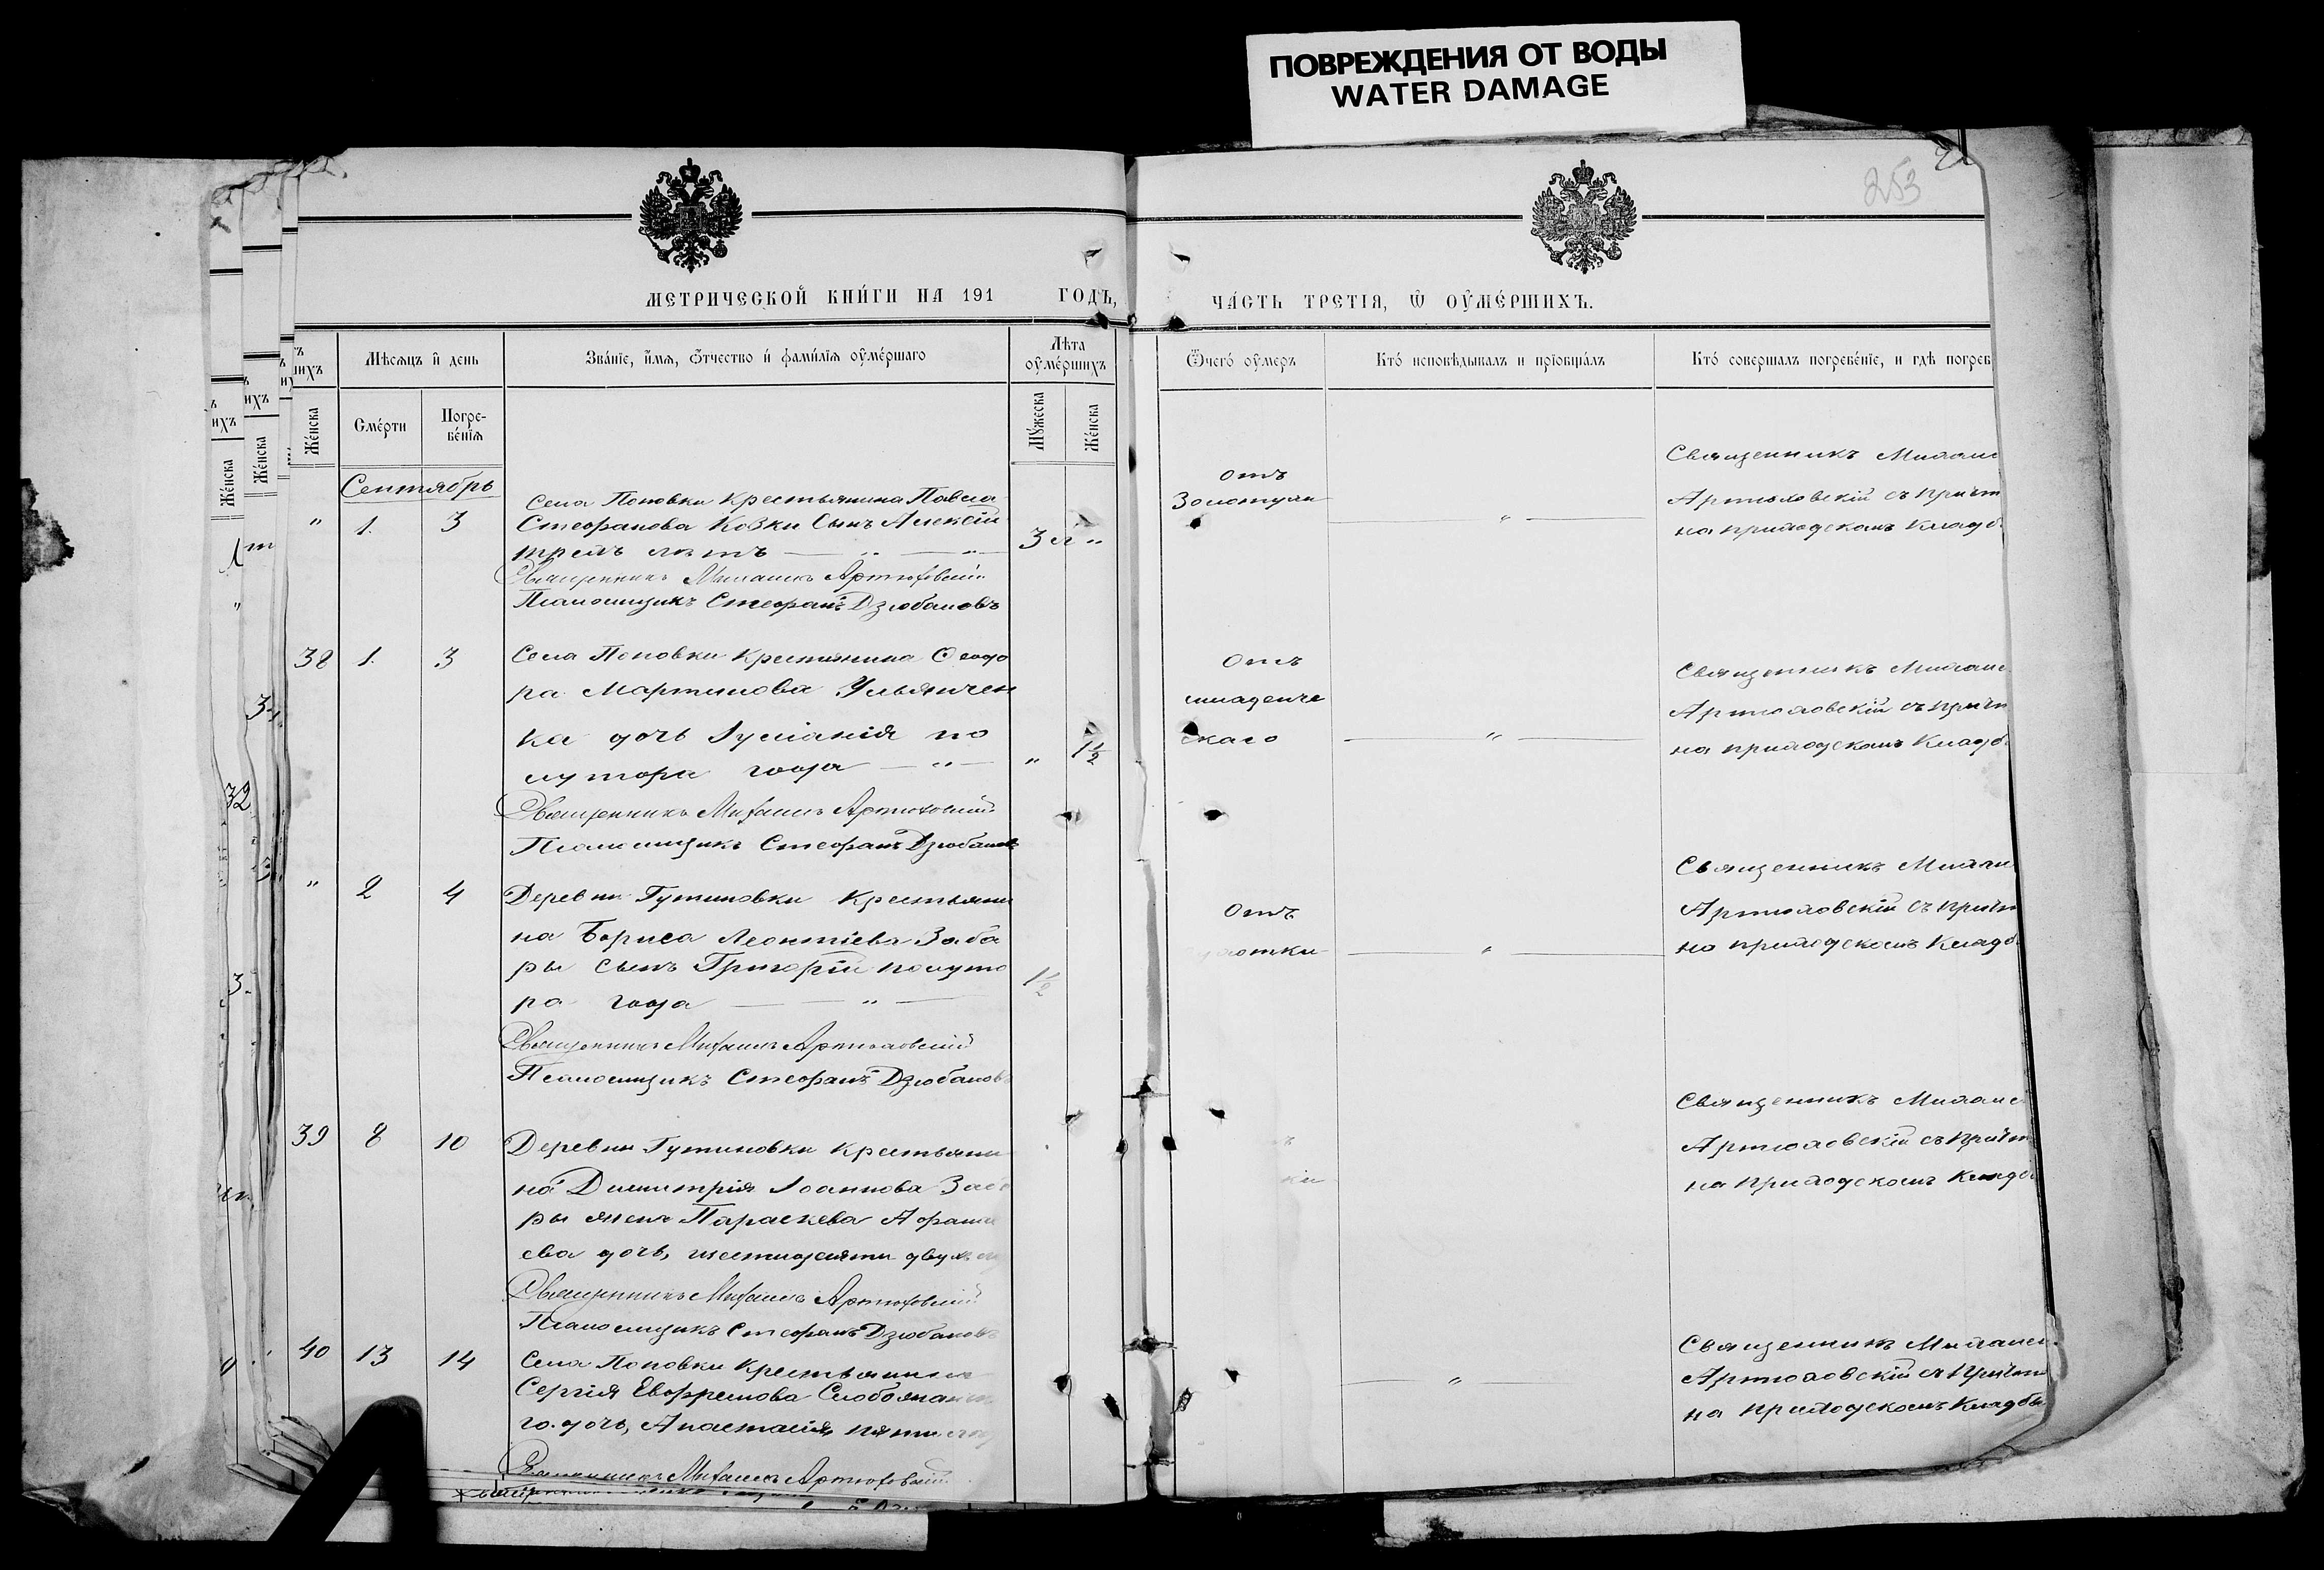 ПОВРЕЖДЕНИЯ ОТ ВОДЫ
WATER DAMAGE
253
МЕТРИЧЕСКОЙ КНИ́ГИ НА 191 ГОДЪ,
ЧА́СТЬ ТРЕТІЯ, Ѿ ОУ҆МЕ́РШИХЪ.
Мѣсяцъ и҆ день
Зва́ніе, и҆́мя, ѻ҆́тчество и҆ фамилія оу҆ме́ршаго
Лѣта оу҆ме́ршихъ
Ѿчегѡ̀ оу҆́меръ
Кто̀ исповѣ́дывалъ и пріобща́лъ
Кто̀ совершалъ погребе́ніе, и гдѣ̀ погреб
Же́нска
Сме́рти
Погре-
бе́нія
Му́жеска
Же́нска
Сентябрь
" 1. 3
Села Поповки крестьянина Павла
Стефанова Козки сынъ Алексій
трехъ лѣтъ — " — "
3 л "
Священникъ Михаилъ Артюховскій
Псаломщикъ Стефанъ Дзюбановъ
отъ
Золотухи
"
Священникъ Михаи
Артюховскій съ причт
на приходскомъ кладб
38 1. 3
Села Поповки крестьянина Ѳеодо
ра Мартинова Ульянчен
ка дочь Іуліанія по
лутора года — " —
" 1½
Священникъ Михаилъ Артюховскій
Псаломщикъ Стефанъ Дзюбановъ
Отъ
младенче
скаго
"
Священникъ Михаи
Артюховскій съ причт
на приходскомъ кладб
" 2 4
Деревни Гутиновки крестьяни
на Бориса Леонтіева Заба
ры сынъ Григорій полуто
ра года — " —
1½
Священникъ Михаилъ Артюховскій
Псаломщикъ Стефанъ Дзюбановъ
Отъ
"
Священникъ Михаи
Артюховскій съ причт
на приходскомъ кладб
39 8 10
Деревни Гутиновки крестьяни
на Димитрія Іоаннова Заба
ры жена Параскева Афана
ева дочь, шестидесяти двухъ
Священникъ Михаилъ Артюховскій
Псаломщикъ Стефанъ Дзюбановъ
Священникъ Михаи
Артюховскій съ причт
на приходскомъ кладб
40 13 14
Села Поповки крестьянина
Сергія Евфремова Слобожан
го дочь, Анастасія, пяти
Священникъ Михаилъ Артюховскій
"
Священникъ Михаил
Артюховскій съ причт
на приходскомъ кладбы